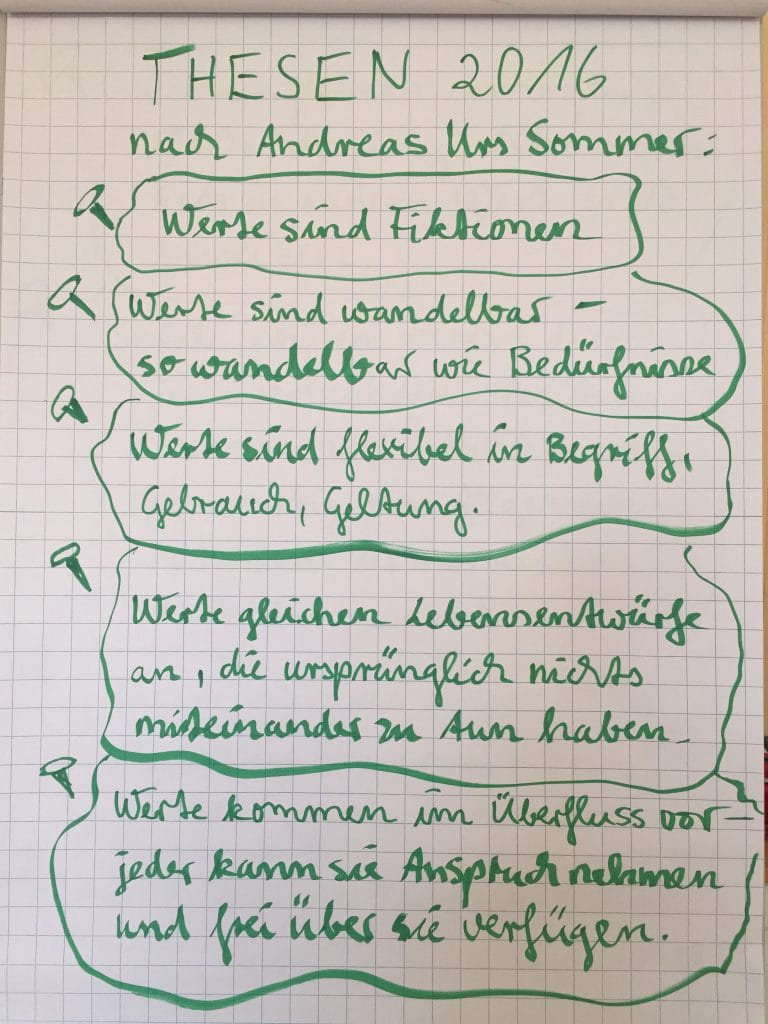 THESEN 2016
nach Andreas Urs Sommer:
Werte sind Fiktionen
Werte sind wandelbar –
so wandelbar wie Bedürfnisse
Werte sind flexibel in Begriff,
Gebrauch, Geltung.
Werte gleichen Lebensentwürfe
an, die ursprünglich nichts
miteinander zu tun haben.
Werte kommen im Überfluss vor –
jeder kann sie Anspruch nehmen
und frei über sie verfügen.